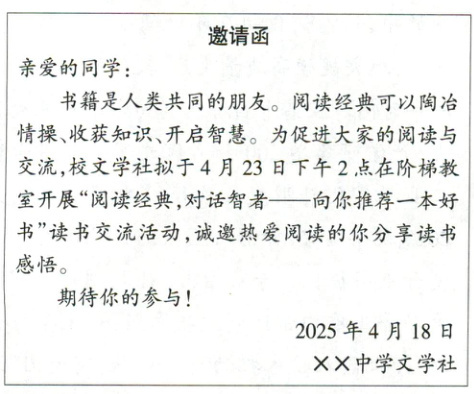 邀请函
亲爱的同学:
书籍是人类共同的朋友。阅读经典可以陶冶
情操、收获知识、开启智慧。为促进大家的阅读与
交流,校文学社拟于4月23日下午2点在阶梯教
室开展“阅读经典,对话智者——向你推荐一本好
书”读书交流活动,诚邀热爱阅读的你分享读书
感悟。
期待你的参与!
2025年4月18日
××中学文学社